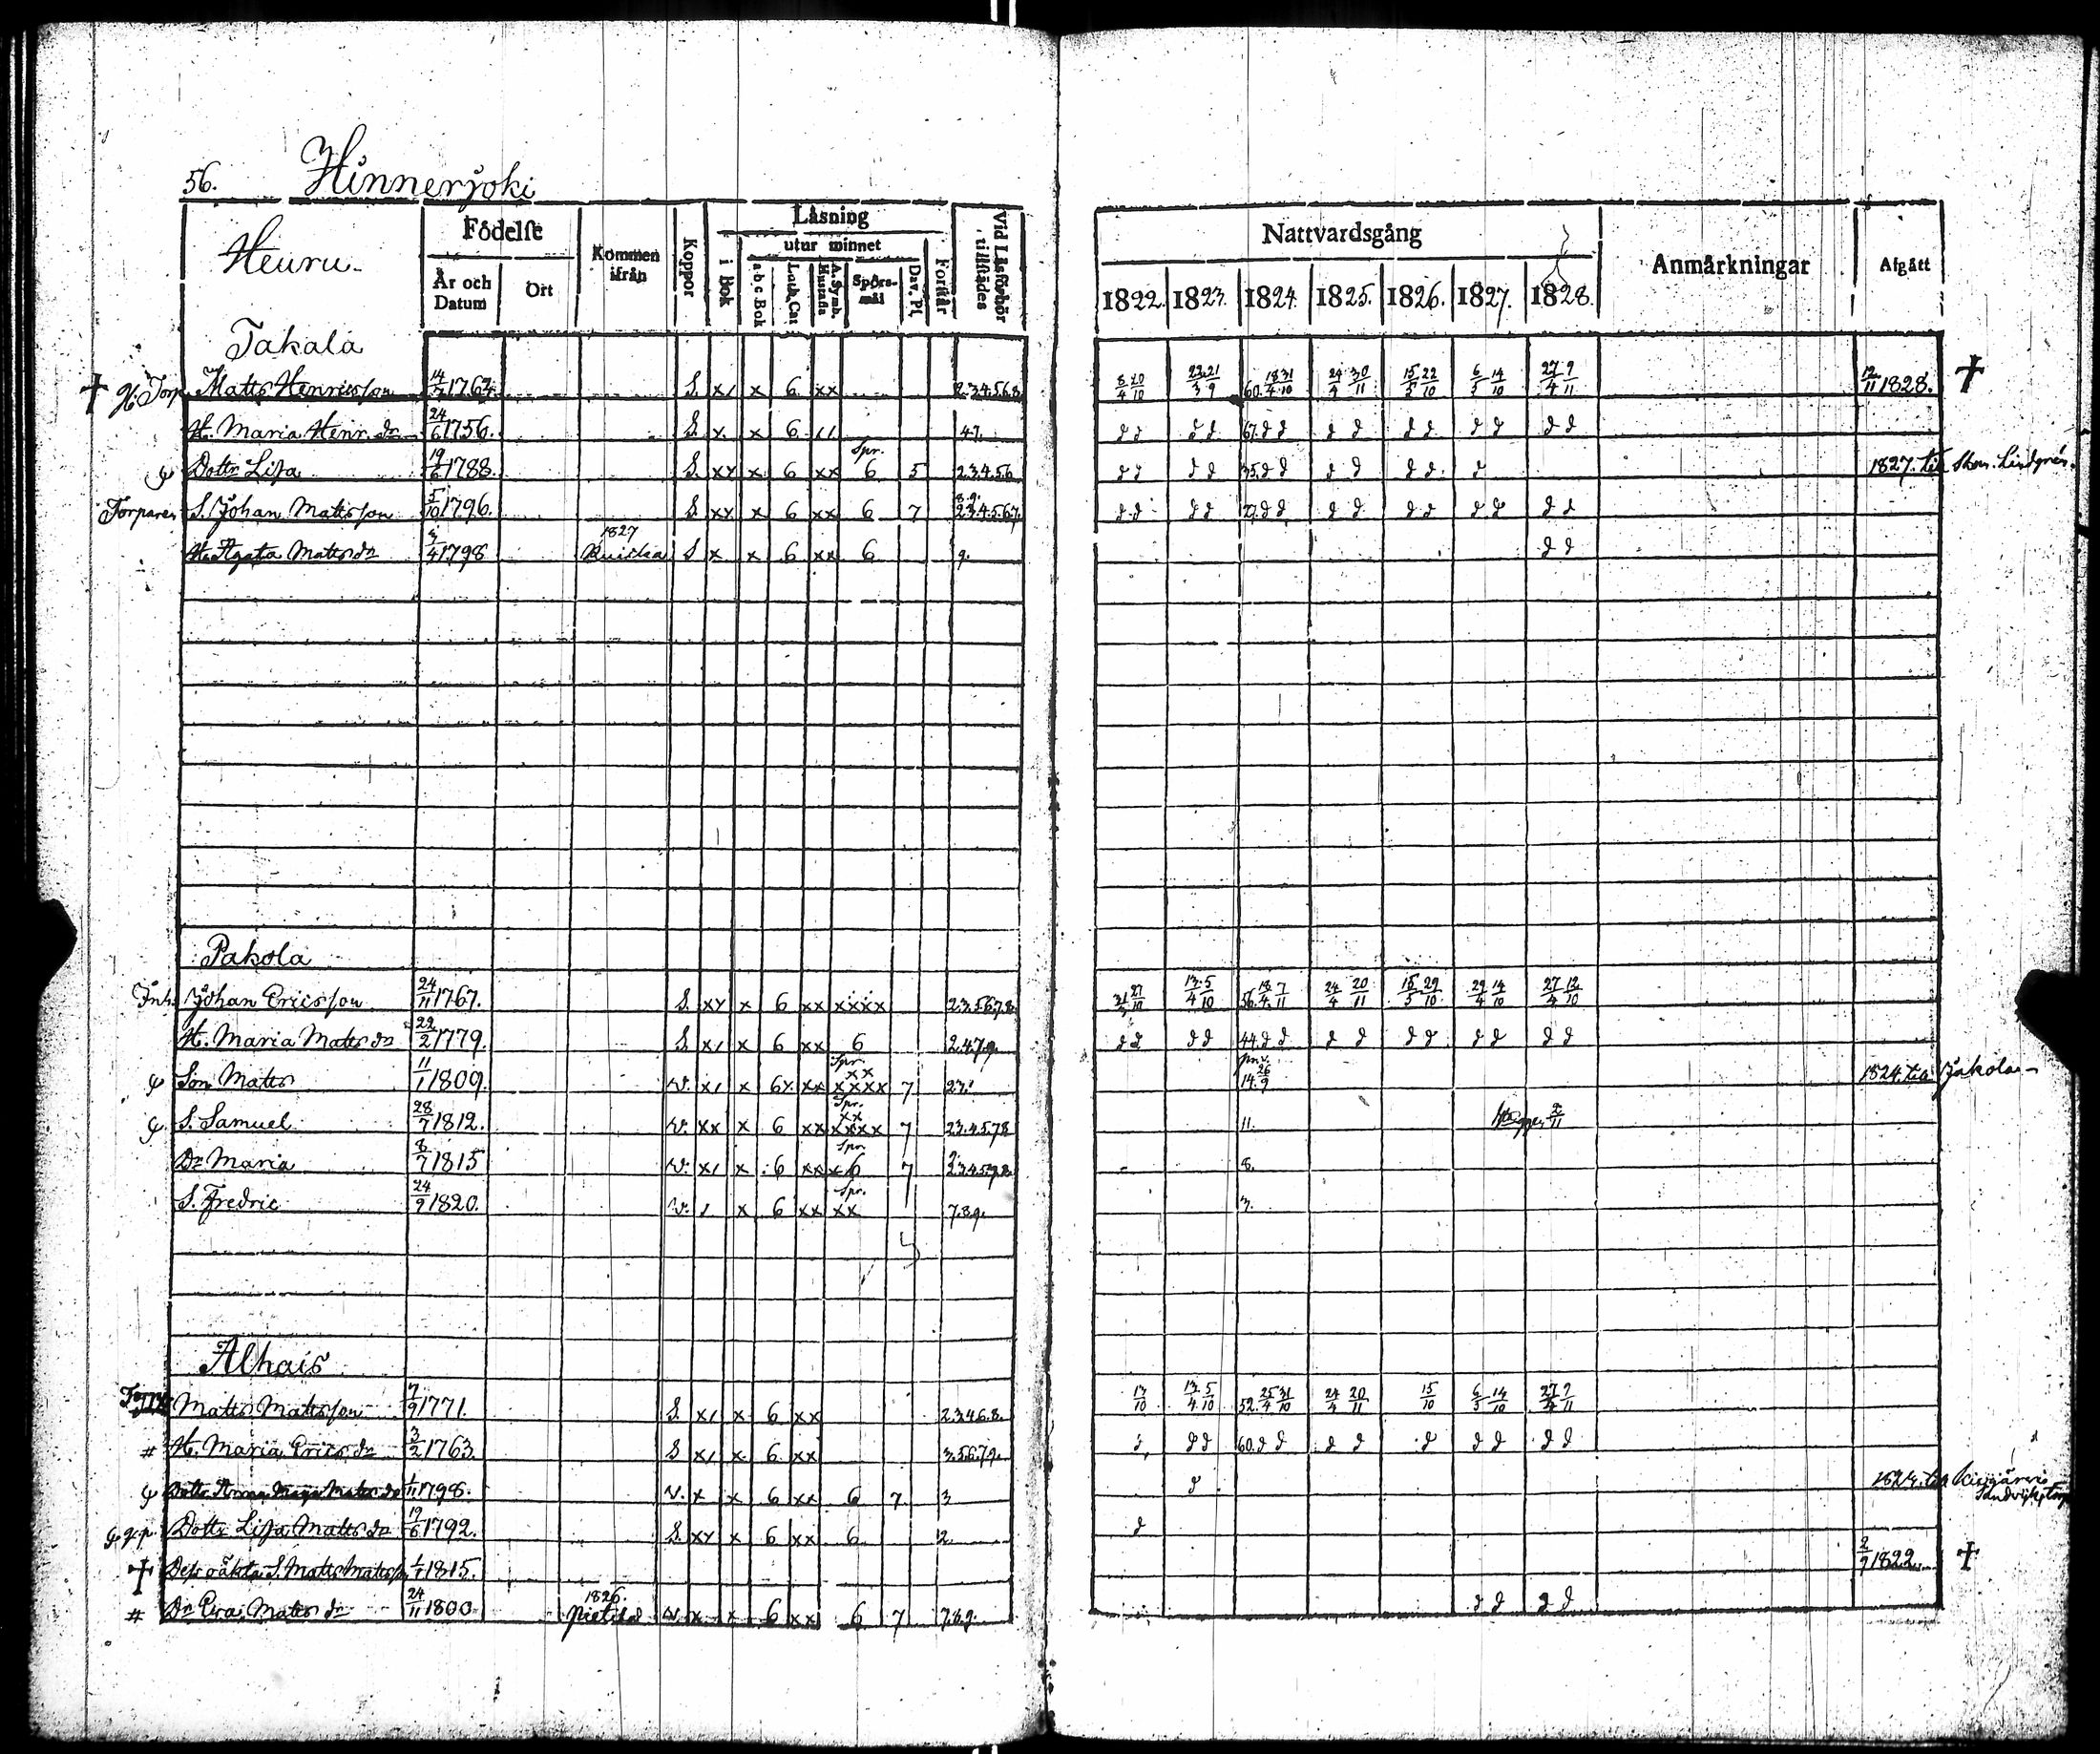 56. Hinnerjoki
Heuru
Födelse
Kommen ifrån
Koppor
Läsning
Vid Läsförhör tillstädes
År och Datum
Ort
i bok
utur minnet
Förstår
a-b-c Bok
Luth. Cat
A. Symb. Hustafla
Spörs-mål
Dav. Ps
Nattvardsgång
Anmärkningar
Afgått
1822. 1823. 1824. 1825. 1826. 1827. 1828.
Takala
† Torp. Matts Henricsson 14/2 1764. S. x/ x 6 xx 2.3.4.5.6.8. 8/4 20/10 60. 18/4 31/10 24/4 30/11 15/5 22/10 6/5 14/10 27/4 9/11 12/11 1828. †
H. Maria Henr. dr 24/6 1756. S. x x 6 // 47. d d d d 67. d d d d d d d d d d
Dottr Lisa 19/6 1788. S. xx x 6 xx Spr. 6 5 2.3.4.5.6. d d d d 35. d d d d d d d 1827. till Lindgrén.
Torparen S. Johan Mattsson 5/10 1796. S. xx x 6 xx 6 7 8.9. 2.3.4.5.6.7. d d d d 27. d d d d d d d d d d
H. Agata Matts dr /4 1798 1827 S x x 6 xx 6 9. d d
Pakola
Inh. Johan Ericsson 24/11 1767. S. xx x 6 xx xxxx 2.3.5.6.7.8. 27/10 13/4 5/10 56. 18/4 7/11 24/4 20/11 15/5 29/10 29/4 14/10 27/4 12/10
H. Maria Matts dr 22/2 1779. S. x/ x 6 xx 6 2.4.7.9. d d d d 44. d d d d d d d d d d
Son Matts 11/1 1809. v. x/ x 6x xx Spr. xx xxxx 7 2.3. 14. 26/9 1824. till Jakola
S. Samuel 28/7 1812. v. xx x 6 xx Spr. xx xxxx 7 2.3.4.5.7.8 11. 2/11
Dr Maria 8/7 1815 v. x/ x 6 xx Spr. x6 7 2.3.4.5.7.8. 8.
S. Fredric 24/9 1820. v. / x 6 xx Spr. xx 7.8.9. 3.
Alhais
Torp. Matts Mattsson 7/9 1771. S. x/ x 6 xx 2.3.4.6.8. 13/10 13/4 5/10 52. 25/4 31/10 24/4 20/11 15/10 6/5 14/10 27/4 9/11
# H. Maria Erics dr 3/2 1763. S x/ x 6 xx 3.5.6.7.9. d d d 60. d d d d d d d d d
Dottr Anna Maja Matts dr 1/11 1798. v. x x 6 xx 6 7 3 d 1824. till
Dottr Lisa Matts dr 19/6 1792. S. xx x 6 xx 6 2. d
† Dess oäkta S. Matts Mattsson 1/1 1815. 2/9 1822. †
# Dr Eva Matts dr 24/11 1800 1826. Pietilä v. x x 6 xx 6 7 7.8.9. d d d d